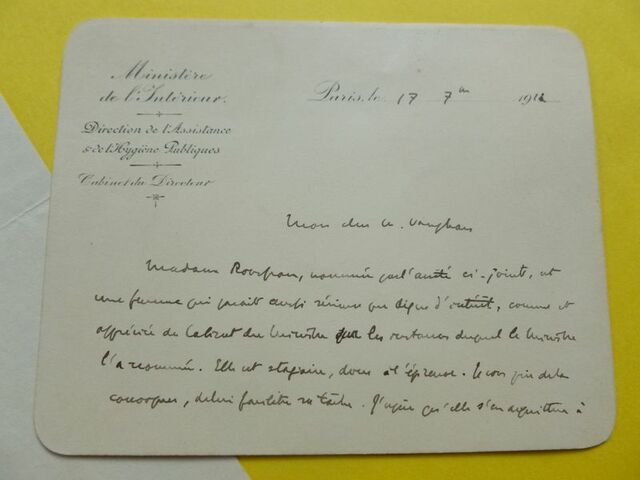 Ministère
de l'Intérieur.
Direction de l'Assistance
& de l'Hygiène Publiques
Cabinet du Directeur
Paris, le 17 7bre 191
Mon cher M. Vaughan
Madame, nommée par l'arrêté ci-joint, est
une femme qui paraît aussi sérieuse que digne d'intérêt, connue et
appréciée du Cabinet du Ministre sur les instances duquel le Ministre
l'a nommée. Elle est stagiaire, donc à l'épreuve. Je vous prie de la
convoquer, de lui faciliter sa tâche. J'espère qu'elle s'en acquittera à